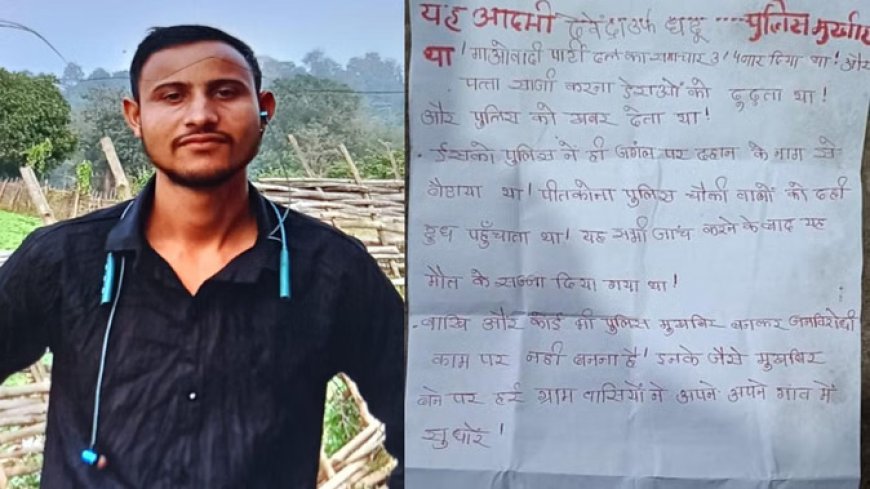 यह आदमी देवेंद्र उर्फ धदू ..... पुलिस मुखबीर
था ! माओवादी पार्टी दल का समाचार 3/4 बार दिया था ! और
पत्ता साजी करना डेराओं को दूढता था !
और पुलिस को खबर देता था !
. ईसको पुलिस ने ही जगंल पर दहान के नाम से
बैहाया था ! पीतकोना पुलिस चौकी वालों को दही
दुध पहुँचाता था ! यह सभी जांच करने के बाद यह
मौत के सज्जा दिया गया था !
. बाखि और कोई भी पुलिस मुखबिर बनकर जनविरोधी
काम पर नही बनना है ! इनके जैसे मुखबिर
बने पर हर ग्राम वासियों ने अपने अपने गाव में
सुधोरें !